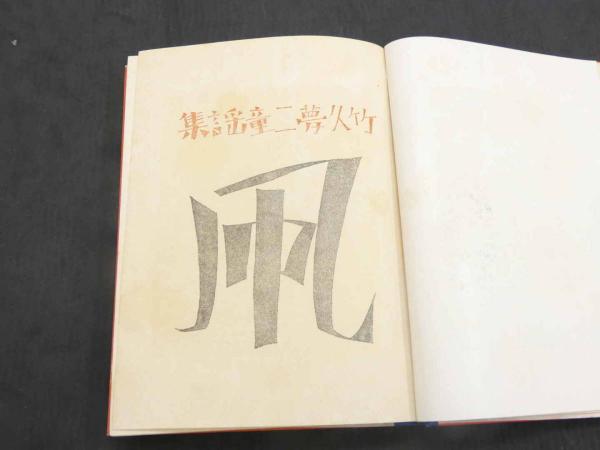 竹久夢二童謡集
凧